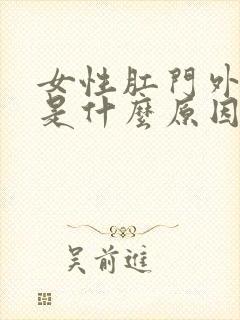 女性肛門外
是什麼原因
吳前進